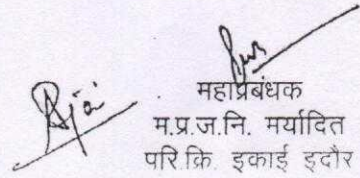 महाप्रबंधक
म.प्र.ज.नि. मर्यादित
परि.क्रि. इकाई इंदौर